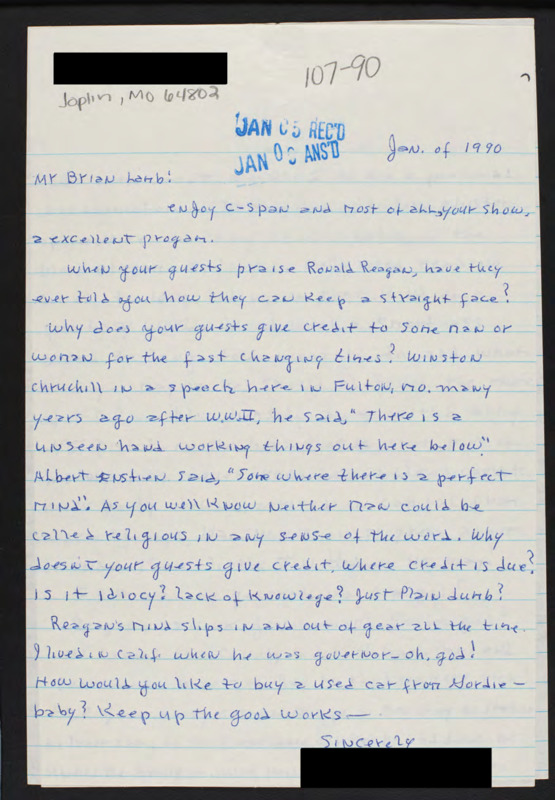 107-90
Joplin, MO 64802
JAN 05 REC'D
JAN 0 ANS'D
Jan. of 1990
Mr Brian Lamb!
enjoy C-Span and most of all, your show,
a excellent progam.
When your guests praise Ronald Reagan, have they
ever told you how they can keep a straight face?
Why does your guests give credit to some man or
woman for the fast changing times? Winston
Chruchill in a speech here in Fulton, Mo. many
years ago after W.W.II, he said, "There is a
unseen hand working things out here below."
Albert Enstien said, "Some where there is a perfect
mind". As you well know neither man could be
called religious in any sense of the word. Why
doesn't your guests give credit, where credit is due?
is it idiocy? Lack of Knowlege? Just Plain dumb?
Reagan's mind slips in and out of gear all the time.
I lived in Calif. when he was governor-oh, god!
How would you like to buy a used car from Gordie-
baby? Keep up the good works—
Sincerely